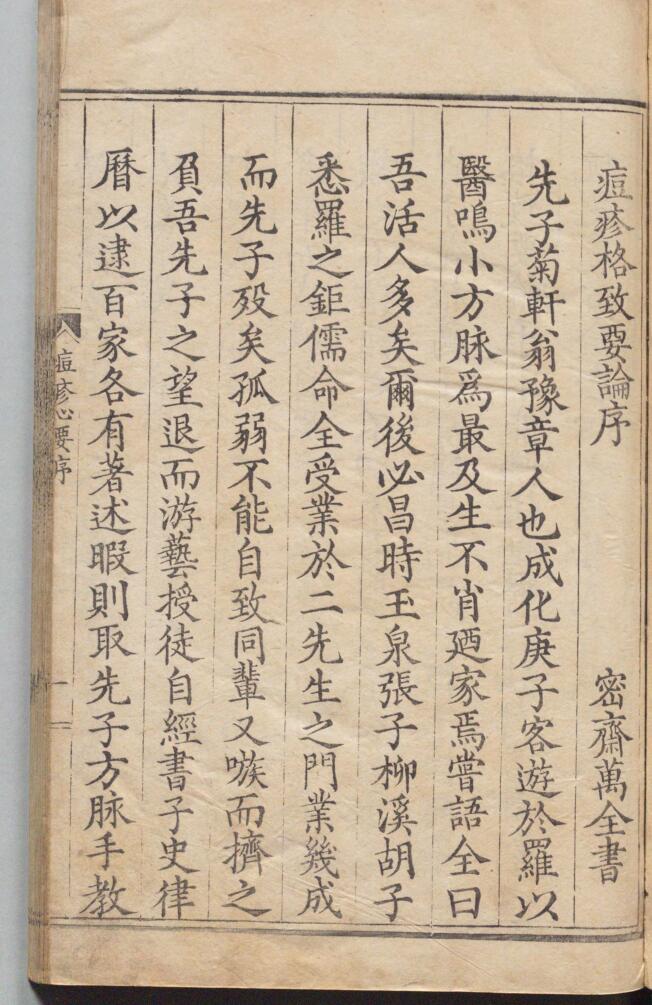 痘疹格致要論序 密齋萬全書
先子菊軒翁豫章人也成化庚子客遊於羅以
醫鳴小方脉爲最及生不肖廼家焉嘗語全曰
吾活人多矣爾後必昌時玉泉張子柳溪胡子
悉羅之鉅儒命全受業於二先生之門業幾成
而先子歿矣孤弱不能自致同輩又嫉而擠之
負吾先子之望退而游藝授徒自經書子史律
曆以逮百家各有著述暇則取先子方脉手教
痘疹心要序
一